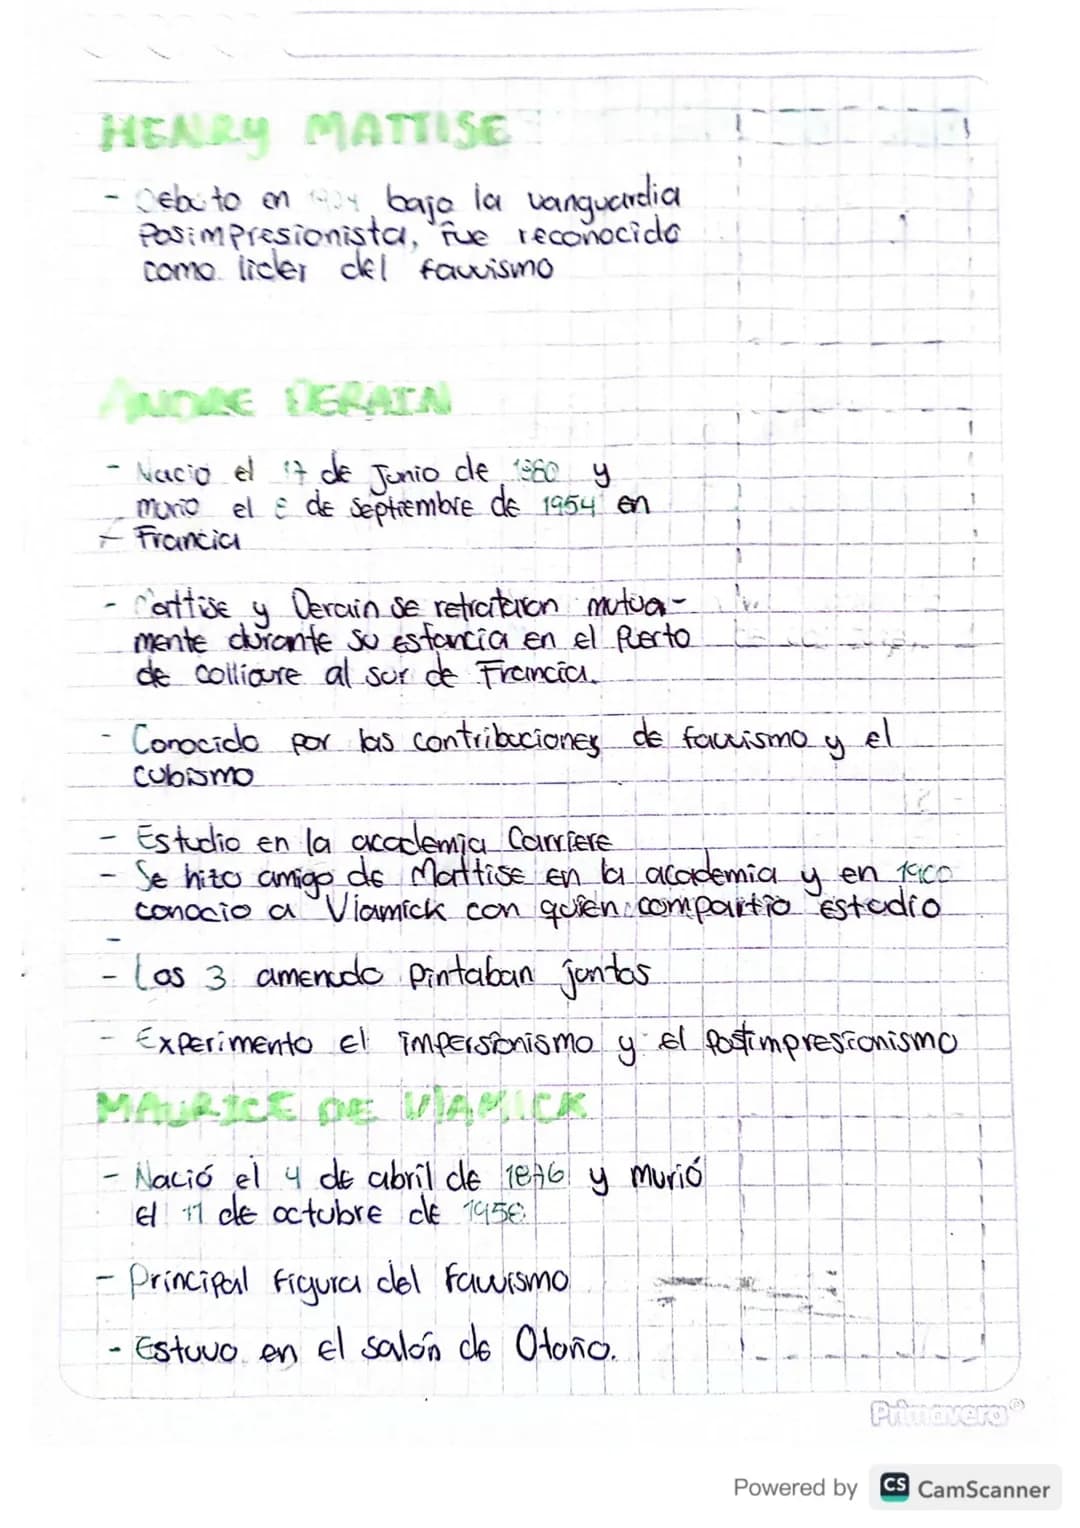 HENRY MATTISE
- Debuto en 1904 bajo la vanguardia
Posimpresionista, fue reconocido
como lider del fauvismo
ANDRE DERAIN
- Nacio el 17 de Junio de 1880 y
murio el 8 de septiembre de 1954 en
- Francia
- Mattise y Derain se retrataron mutua-
mente durante su estancia en el puerto
de collioure al sur de Francia.
- Conocido por las contribuciones de fauvismo y el
cubismo
- Estudio en la academia Carriere
- Se hizo amigo de Mattise en la academia y en 1900
conocio a Vlamick con quien compartio estudio
-
- Los 3 amenudo pintaban juntos
- Experimento el impersionismo y el postimpresionismo
MAURICE DE VLAMICK
- Nació el 4 de abril de 1876 y murió
el 11 de octubre de 1958
- Principal figura del fauvismo
- Estuvo en el salón de Otoño.
Primavera®
Powered by CS CamScanner